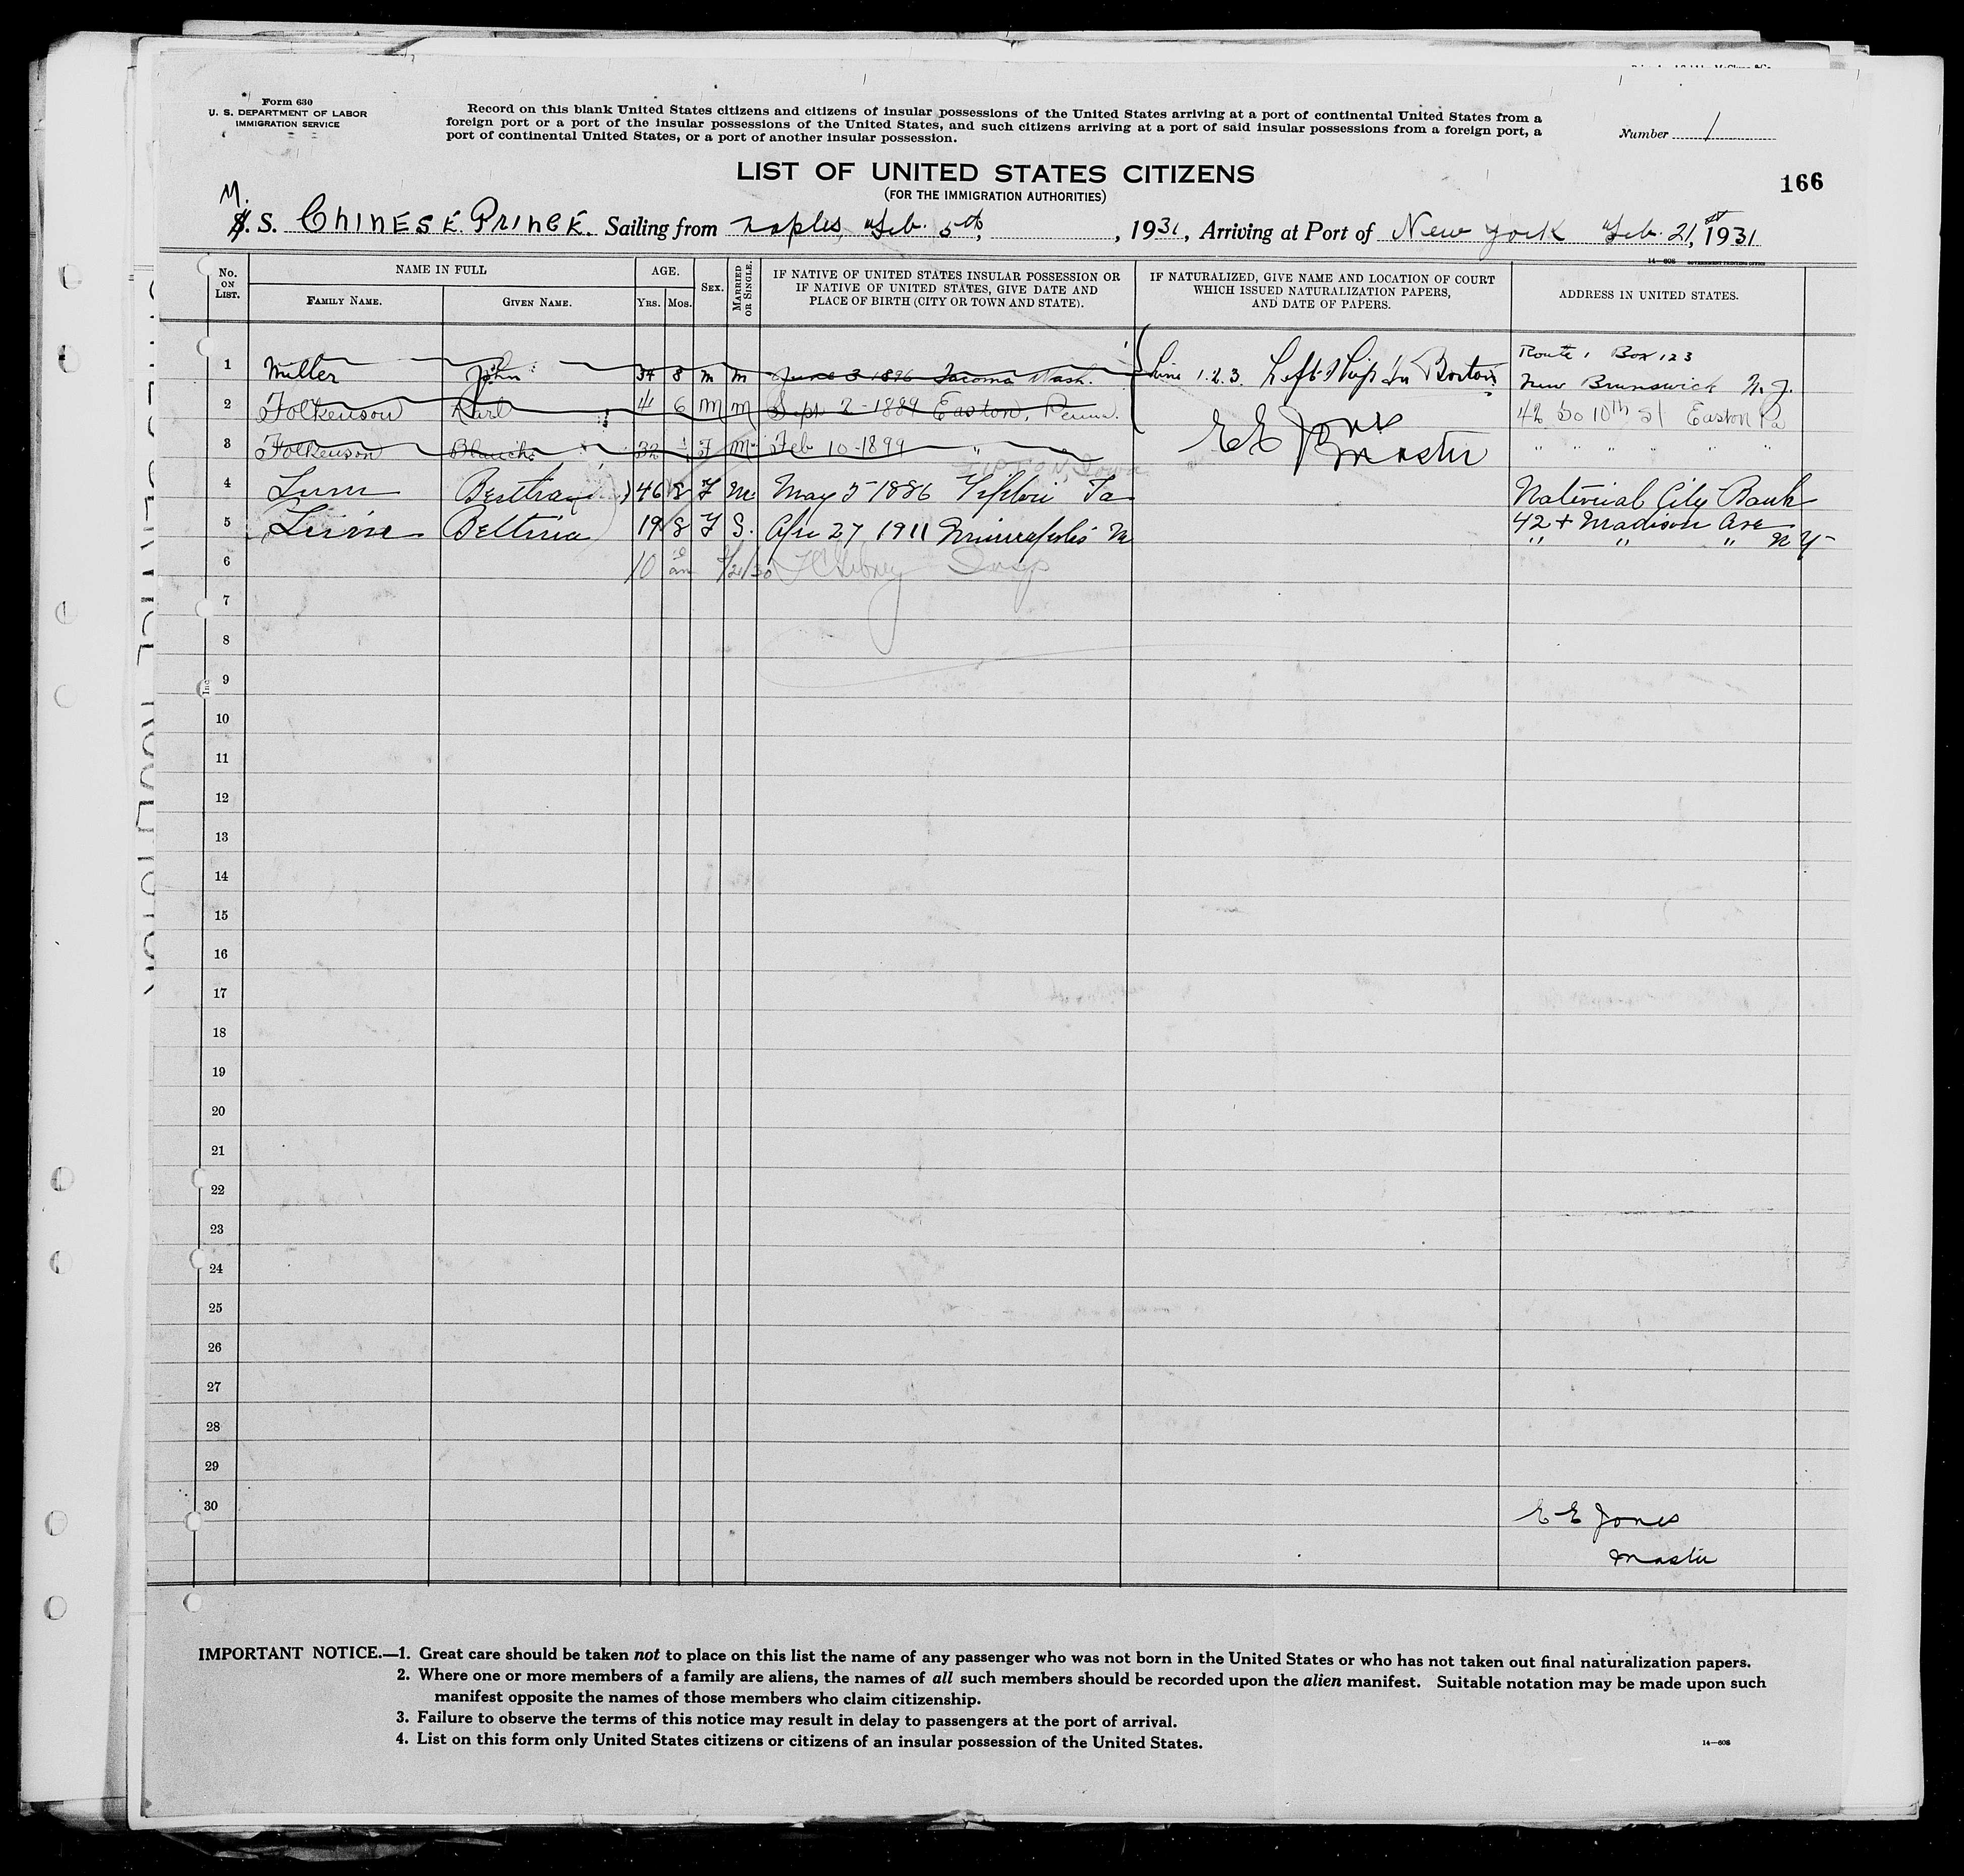 Form 630
U. S. DEPARTMENT OF LABOR
IMMIGRATION SERVICE
Record on this blank United States citizens and citizens of insular possessions of the United States arriving at a port of continental United States from a
foreign port or a port of the insular possessions of the United States, and such citizens arriving at a port of said insular possessions from a foreign port, a
port of continental United States, or a port of another insular possession.
Number 1
LIST OF UNITED STATES CITIZENS
(FOR THE IMMIGRATION AUTHORITIES)
166
M.
S. S. CHINESE PRINCE. Sailing from Naples, Feb. 5th, , 1931, Arriving at Port of New York Feb. 21st, 1931
14—608 GOVERNMENT PRINTING OFFICE
No. ON LIST.
NAME IN FULL
FAMILY NAME.
GIVEN NAME.
AGE.
YRS.
MOS.
SEX.
MARRIED OR SINGLE.
IF NATIVE OF UNITED STATES INSULAR POSSESSION OR
IF NATIVE OF UNITED STATES, GIVE DATE AND
PLACE OF BIRTH (CITY OR TOWN AND STATE).
IF NATURALIZED, GIVE NAME AND LOCATION OF COURT
WHICH ISSUED NATURALIZATION PAPERS,
AND DATE OF PAPERS.
ADDRESS IN UNITED STATES.
1 Miller John 34 8 m m June 3 1896 Tacoma Wash. Line 1.2.3. Left Ship in Boston Route 1 Box 123
New Brunswick N.J.
2 Folkenson Karl 41 6 M M Sept 2-1889 Easton, Penna. 42 So 10th St Easton Pa
E E Jones
Master
3 Folkenson Blanche 32 F M Feb 10-1899 " " " " " " "
TIPTON, Iowa
4 Lum Bertha 46 8 F M. May 5-1886 Tipton Ia National City Bank
42 + Madison Ave
5 Lum Bettina 19 8 F S. Apr 27 1911 Minneapolis M " " " N Y
6 10 am
Insp
7
8
9
10
11
12
13
14
15
16
17
18
19
20
21
22
23
24
25
26
27
28
29
30
E E Jones
Master
IMPORTANT NOTICE.—1. Great care should be taken not to place on this list the name of any passenger who was not born in the United States or who has not taken out final naturalization papers.
2. Where one or more members of a family are aliens, the names of all such members should be recorded upon the alien manifest. Suitable notation may be made upon such
manifest opposite the names of those members who claim citizenship.
3. Failure to observe the terms of this notice may result in delay to passengers at the port of arrival.
4. List on this form only United States citizens or citizens of an insular possession of the United States.
14—608